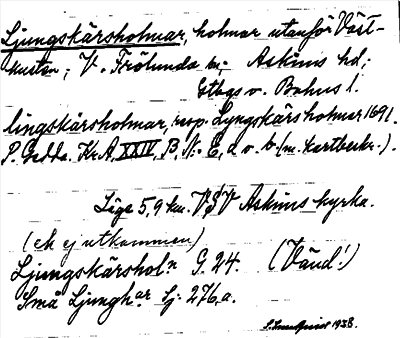 Ljungskärsholmar, holmar utanför Väst-
kusten; V. Frölunda sn; Askims hd;
Gtbgs o. Bohus l.
lingskärsholmar, resp. Lyngskärsholmar 1691.
P. Gedda. Kr. A. XXIV, B, N: E, a o. b (m. kartbeskr.).
Läge 5,9 km. VSV Askims kyrka.
(ek ej utkommen)
Ljungskärsholn G. 24. (Vänd!)
Små Ljunghar Sj: 276, a.
1938.